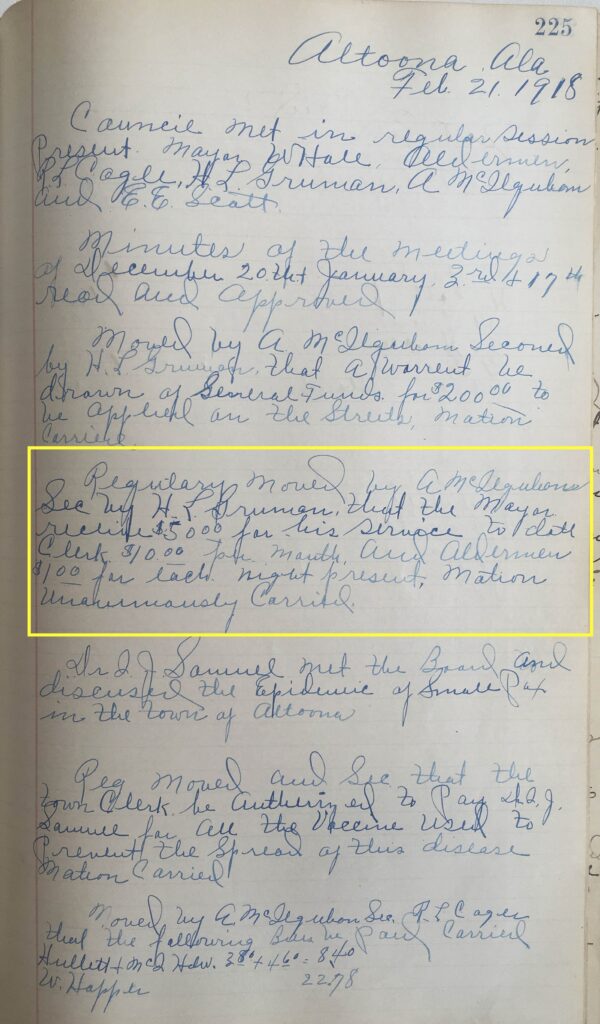 225
Altoona, Ala
Feb. 21. 1918
Council met in regular Session
Present. Mayor W Hale, Aldermen,
R L Cagle, H L Gruman, A McIlquham
and E.E. Scott.
Minutes of the meetings
of December 20th + January, 3rd + 17th
read and approved
Moved by A. McIlquham Seconed
by H. L Gruman, that a Warrent be
drawn of General Funds for $200.00 to
be applied on the Streets, Motion
Carried.
Regulary Moved by A McIlquham
Sec by H. L Gruman, that the Mayor
receive $50.00 for his service to date
Clerk $10.00 per month, And Aldermen
$1.00 for each night present, Motion
Unanimously Carried.
Dr J. J. Samuel met the Board and
discused the Epidemic of Small Pox
in the town of Altoona
Reg Moved and Sec that the
town Clerk be Autherized to Pay Dr J. J.
Samuel for All the Vaccine Used to
Prevent the Spread of this disease
Motion Carried
Moved by A. McIlquham Sec. R. L Cagle
that the following be Paid Carried
Hullett + McI Hdw. 3.80 + 4.60 = 8.40
W. Happer 22.78